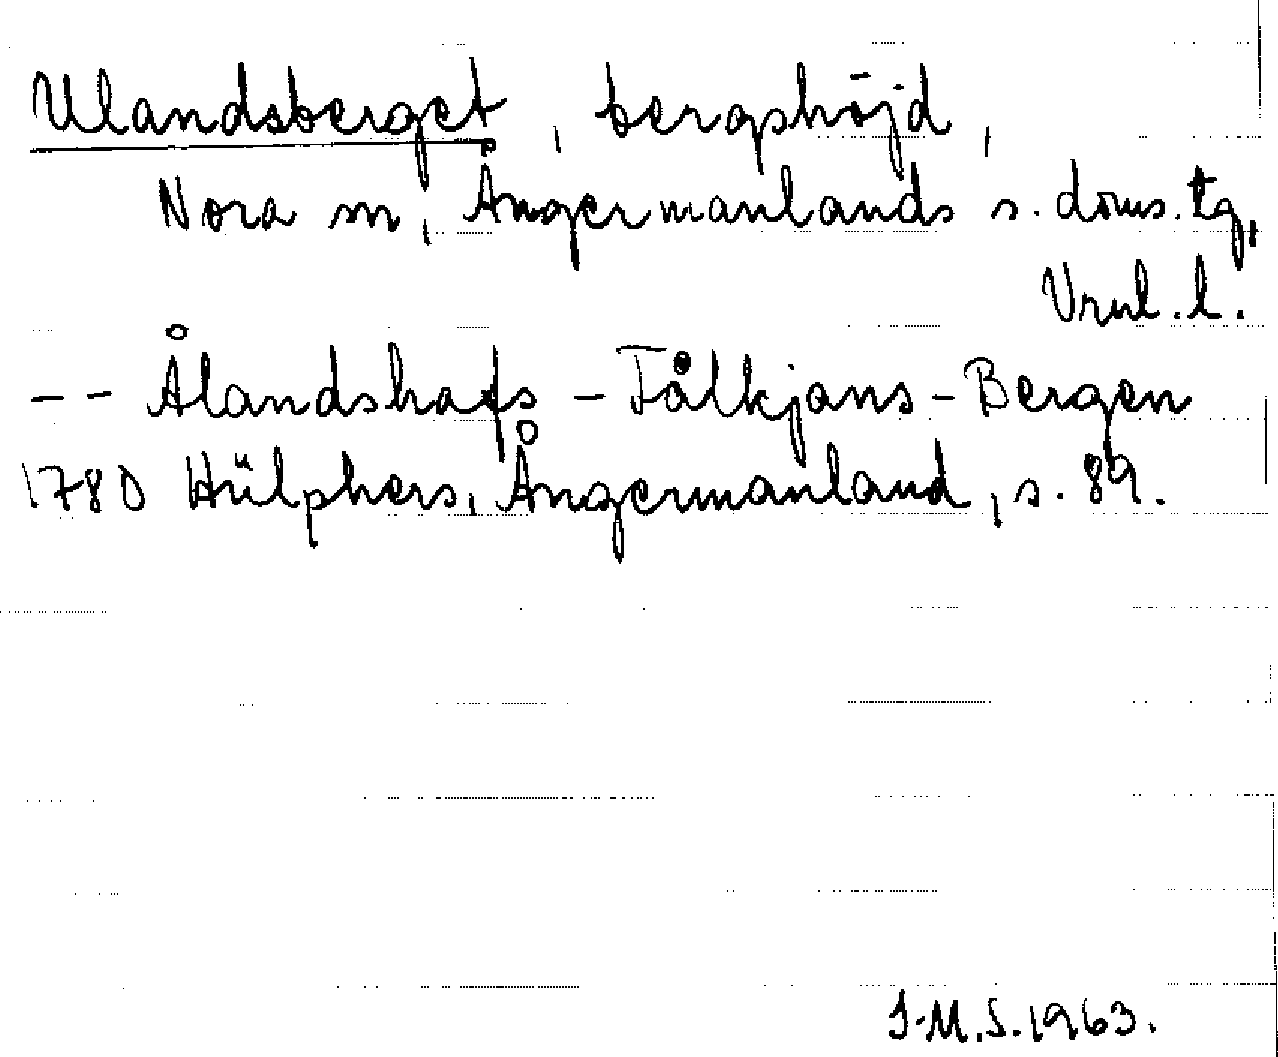 Ulandsberget, bergshöjd,
Nora sn, Ångermanlands s. doms. tg,
Vrnl. l.
-- Ålandshafs-Fålkjans-Bergen
1780 Hülphers, Ångermanland, s. 89.
I.M.S. 1963.